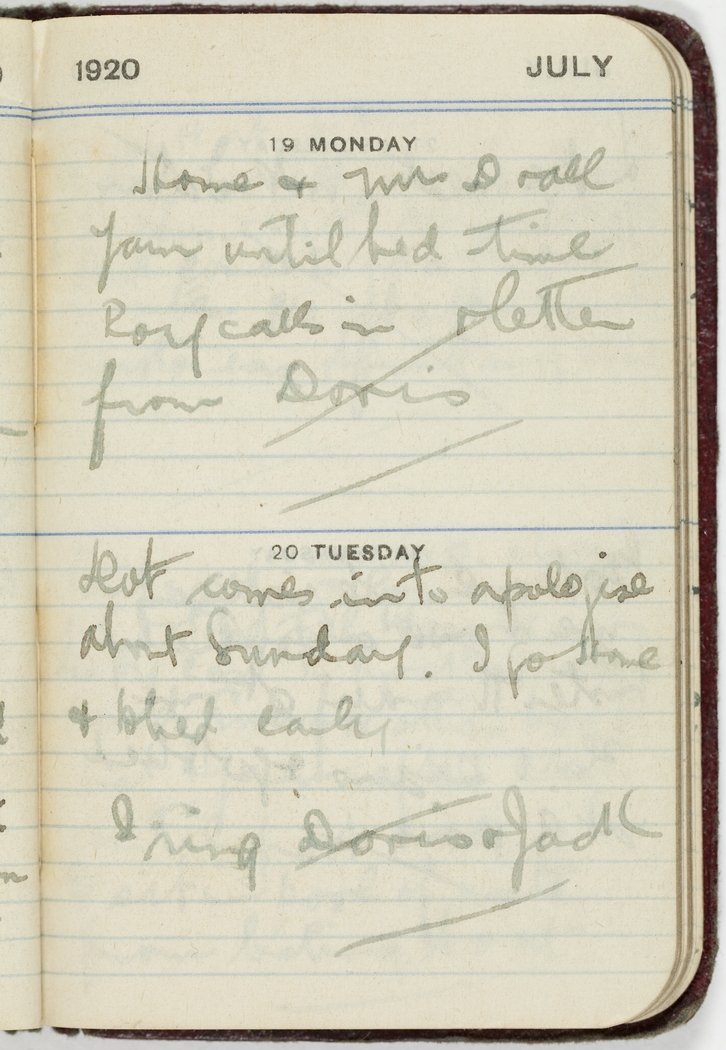 1920 JULY
19 MONDAY
Home & Mr D call
Yarn until bed time
Rory calls in letter
from Doris
20 TUESDAY
Dot comes in to apologise
about Sunday. I go Home
& to bed early
I ring Doris & Jack